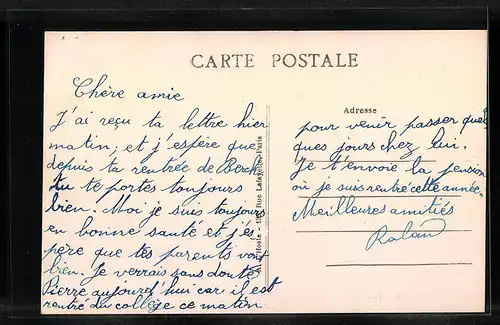 CARTE POSTALE
Chère amie
J'ai reçu ta lettre hier
matin; et j'espère que
depuis ta rentrée de Berck
tu te portes toujours
bien. Moi je suis toujours
en bonne santé et j'es
père que tes parents vont
bien. Je verrais sans doute
Pierre aujourd'hui car il est
rentré du collège ce matin
Rue Lafayette, Paris
Adresse
pour venir passer quel
ques jours chez lui.
Je t'envoie la pension
où je suis rentré cette année.
Meilleures amitiés
Roland